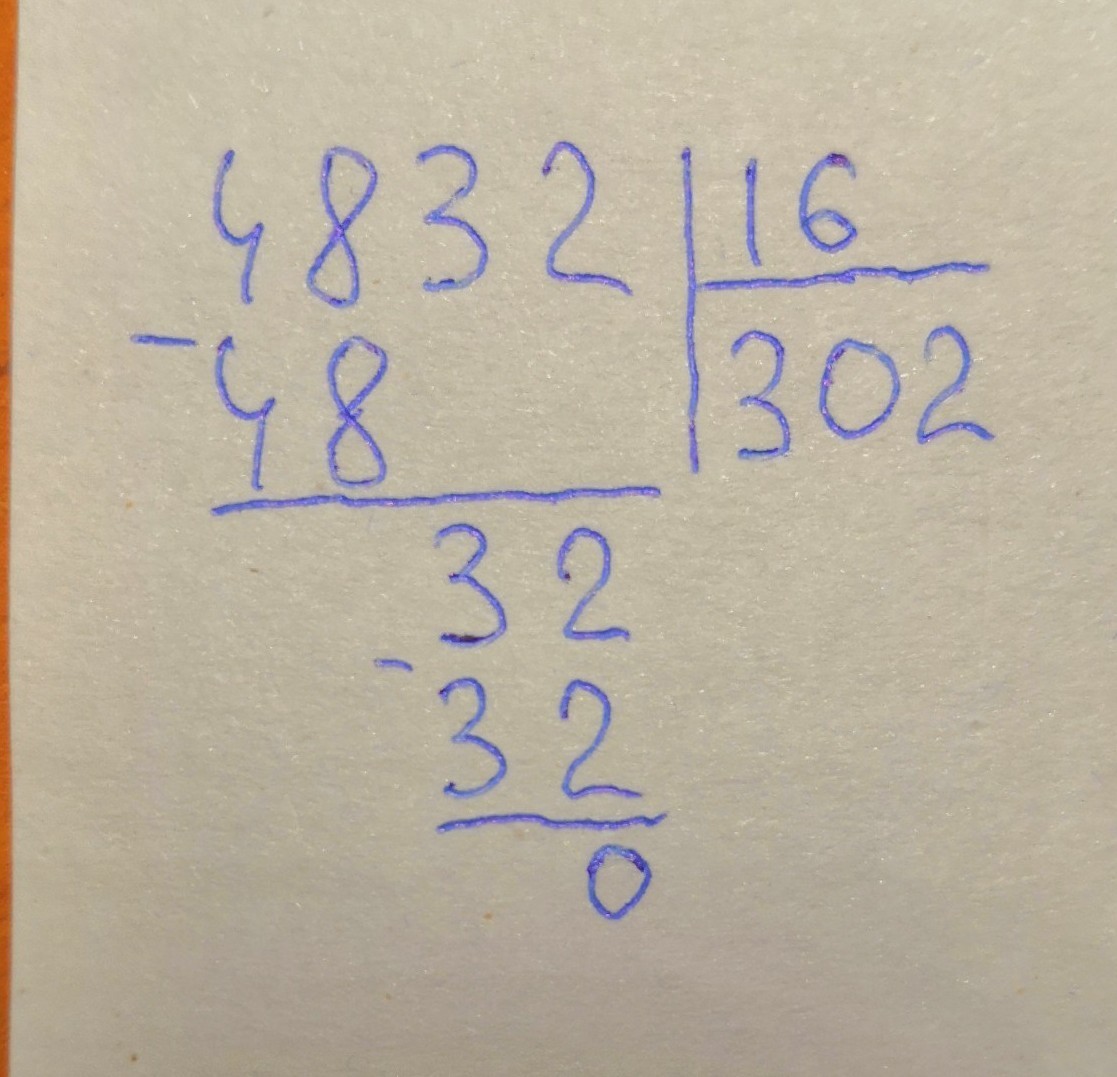 4832 | 16
- 48 | 302
32
- 32
0